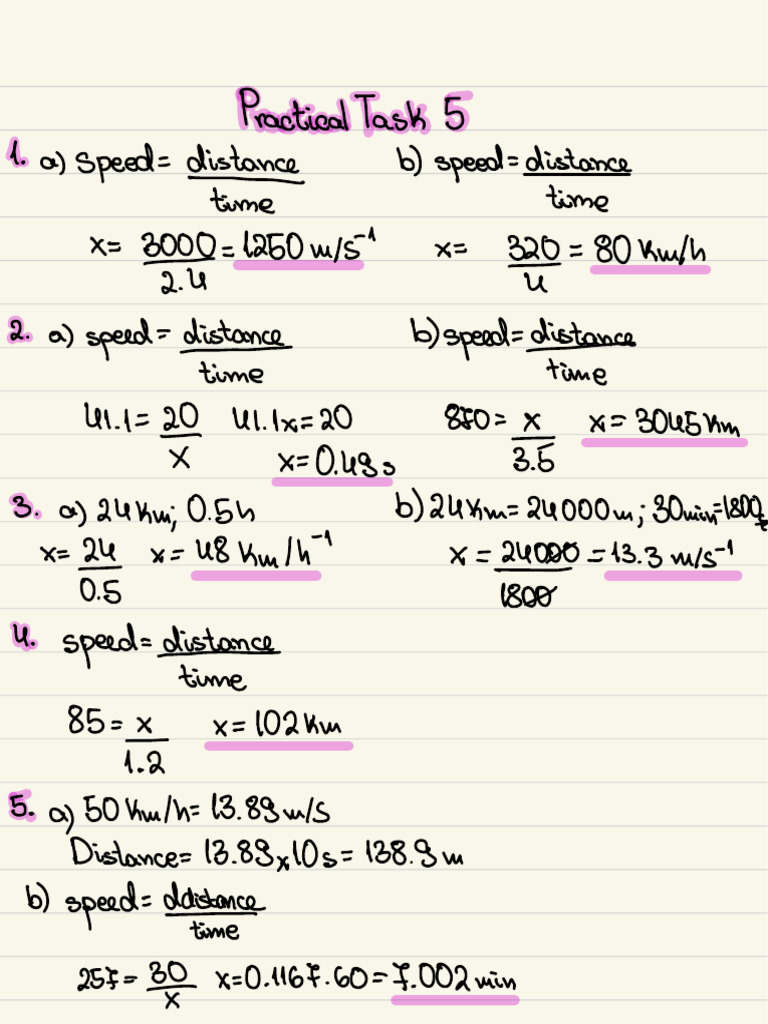 Practical Task 5
1. a) speed = distance / time b) speed = distance / time
x = 3000 / 2.4 = 1250 m/s⁻¹ x = 320 / 4 = 80 Km/h
2. a) speed = distance / time b) speed = distance / time
41.1 = 20 / x 41.1x = 20 870 = x / 3.5 x = 3045 Km
x = 0.49 s
3. a) 24 Km; 0.5 h b) 24 Km = 24000 m; 30 min = 1800
x = 24 / 0.5 x = 48 Km/h⁻¹ x = 24000 / 1800 = 13.3 m/s⁻¹
4. speed = distance / time
85 = x / 1.2 x = 102 Km
5. a) 50 Km/h = 13.89 m/s
Distance = 13.89 x 10 s = 138.9 m
b) speed = ddistance / time
257 = 30 / x x = 0.1167 . 60 = 7.002 min